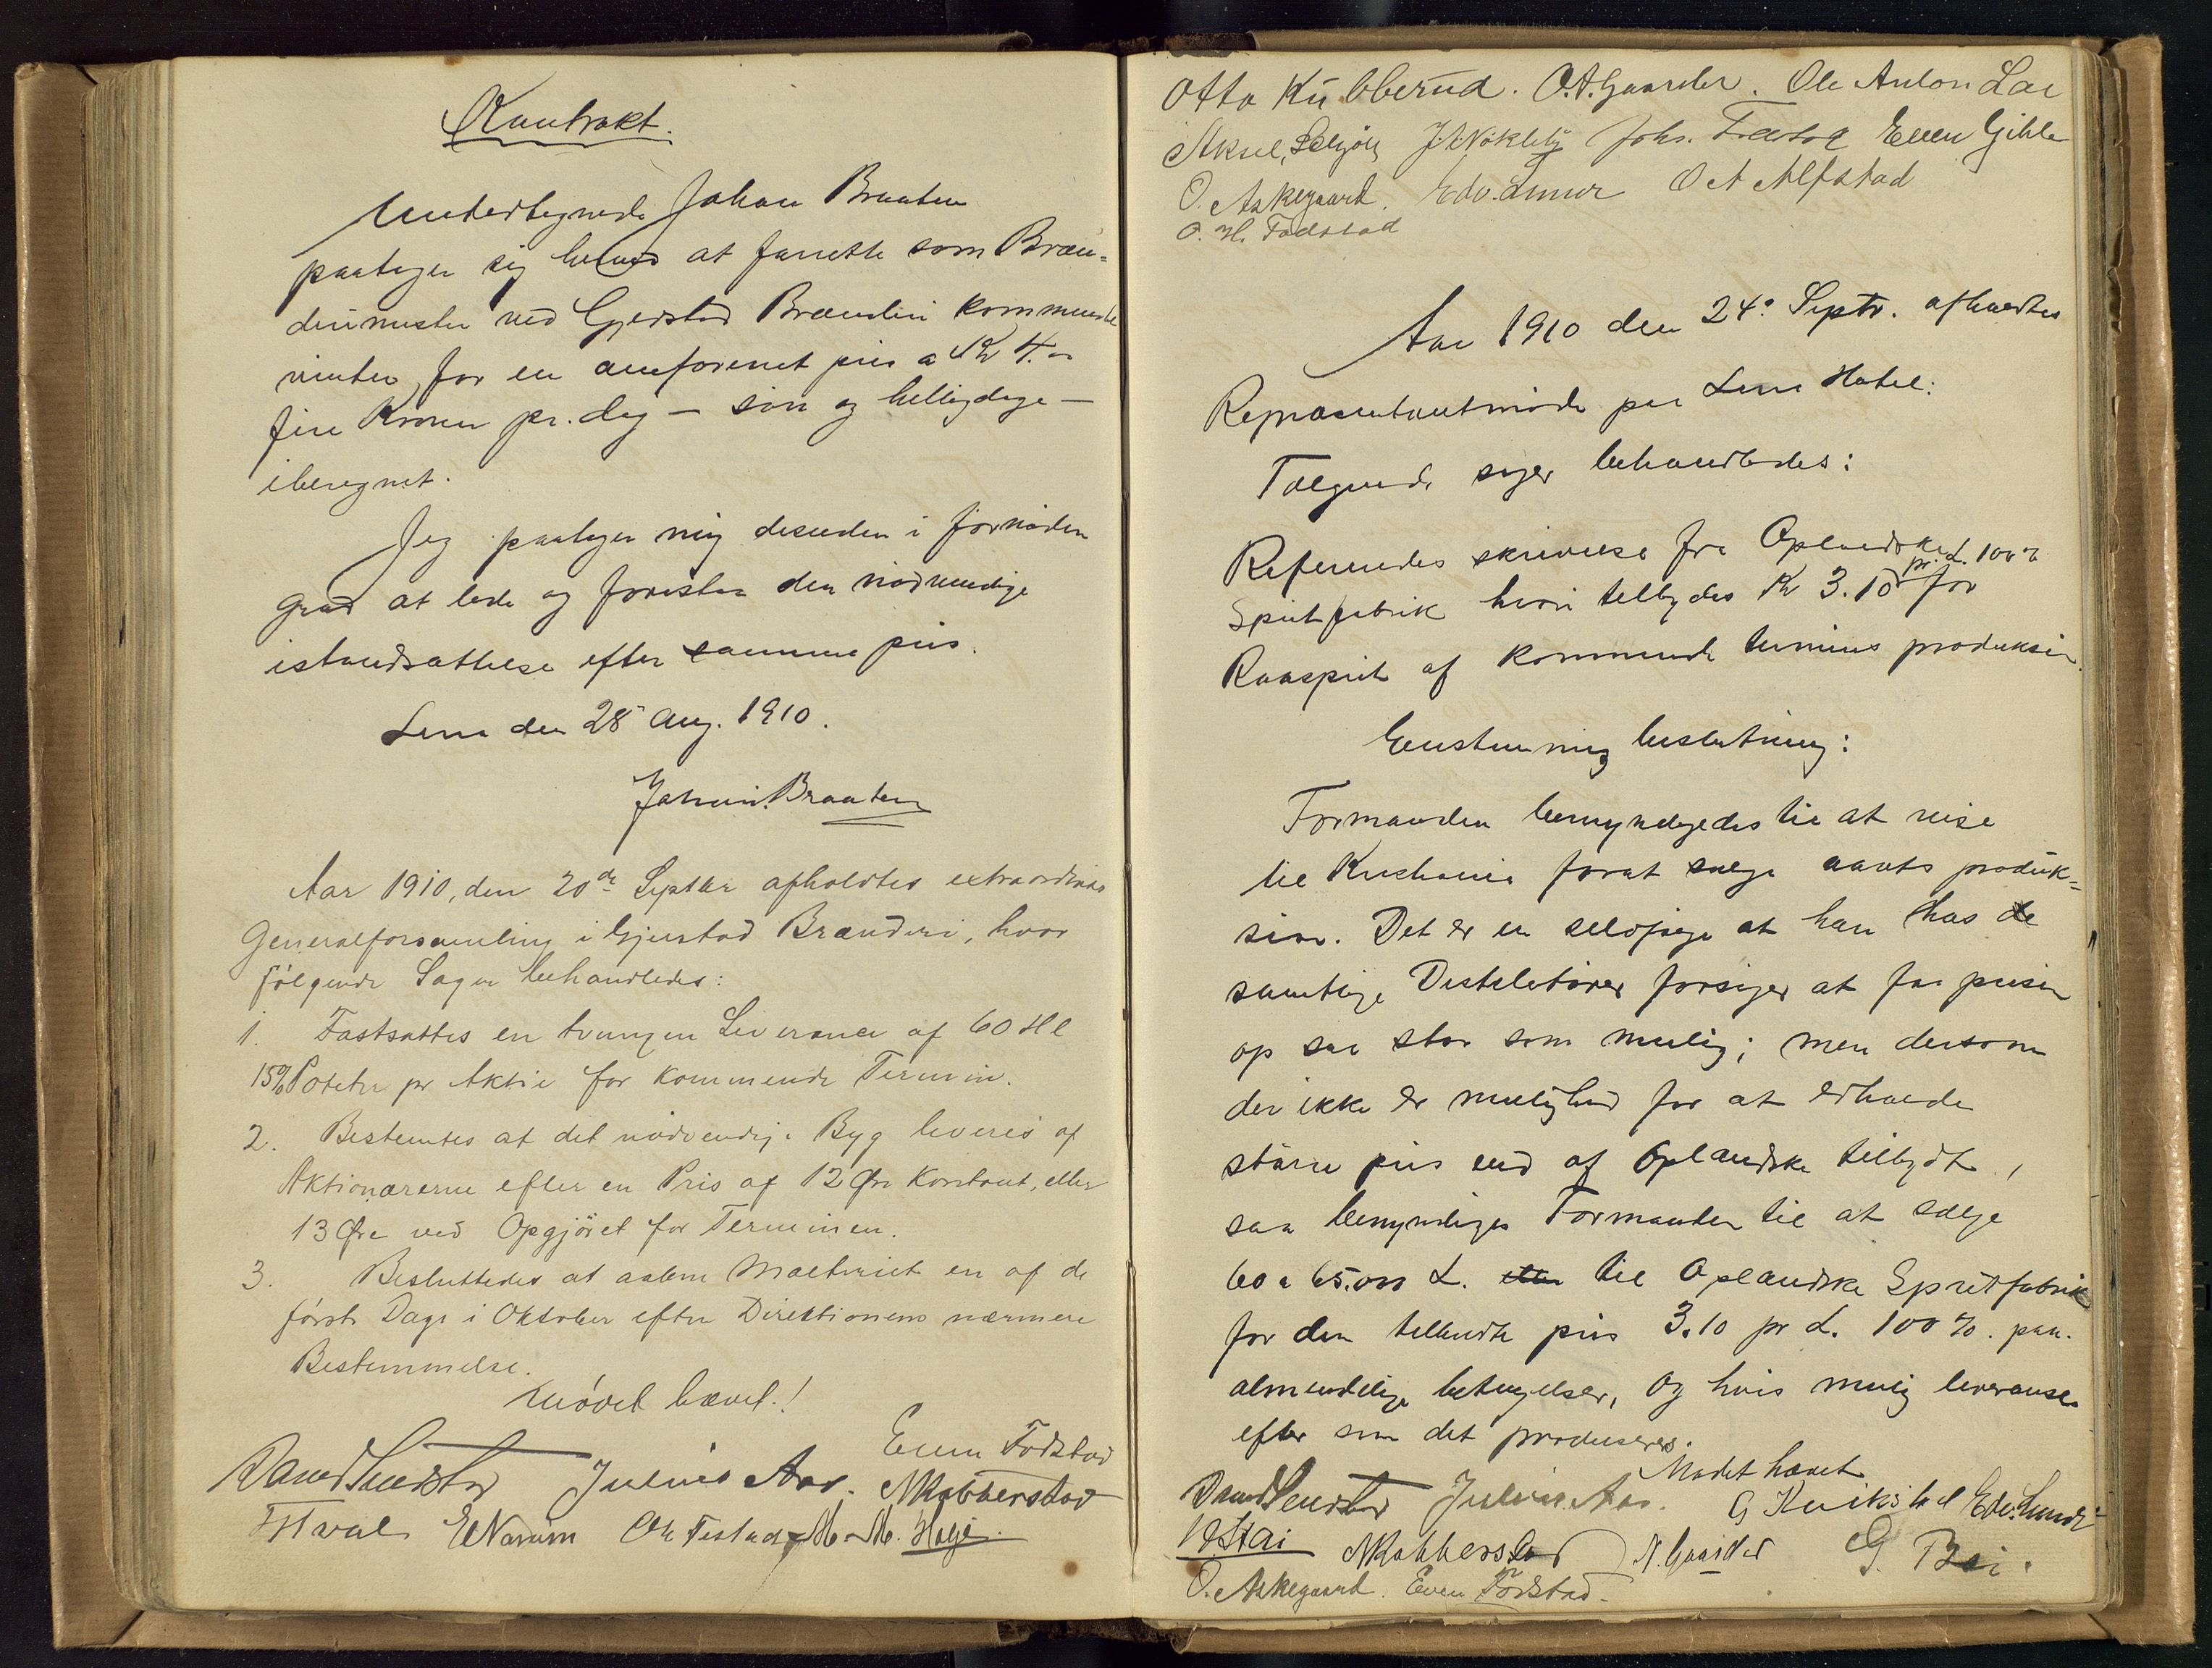 Kontrakt.
Undertegnede Johan Braaten
paatager sig herved at forrette som Bræn-
derimester ved Gjerstad Brænderi kommende
vinter, for en omforenet pris a Kr 4.-
fire Kroner pr. dag - søn og helligdage -
iberegnet.
Jeg paatager mig desuden i fornøden
grad at lede og forestaa den nødvendige
istandsættelse efter samme pris.
Lena den 28 Aug. 1910.
Johan Braaten
Aar 1910, den 20de Septbr afholdtes extraordinær
Generalforsamling i Gjerstad Brænderi, hvor
følgende Sager behandledes:
1. Fastsattes en tvungen Leverance af 60 Hl
15% Poteter pr Aktie for kommende Termin.
2. Bestemtes at det nødvendige Byg leveres af
Aktionærerne efter en Pris af 12 Øre kontant, eller
13 Øre ved Opgjöret for Terminen.
3. Besluttedes at aabne Malteriet en af de
først Dage i Oktober efter Direktionens nærmere
Bestemmelse.
Mødet hævet!
Even Fodstad
Julius Aas. N Kobberstad
E Narum Ole Festad M. M. Helje.
Otto Kübberud. O.A. Gaarder. Ole Anton Loe
Aksel J. Nøkleby Johs. Even Gihle
O. Askegaard. Edv. O A Alfstad
O. H. Fodstad
Aar 1910 den 24. Septr. afholdtes
Repræsentantmøde paa Lena Hotel.
Følgende sager behandledes:
Refereredes skrivelse fra Oplandske
Spritfabrik hvori tilbydes Kr 3.10 pr. L. 100% for
Raasprit af kommende termins produksion.
Enstemmig beslutning:
Formanden bemyndigedes til at reise
til Kristiania forat sælge aarets produk=
sion. Det er en selvføge at han hos de
samtlige Destelatører forsøger at faa prisen
op saa stor som mulig; men dersom
der ikke er mulighed for at erholde
større pris end af Oplandske tilbydt,
saa bemyndiges Formanden til at sælge
60 a 65.000 L. til Oplandske Spritfabrik
for den tilbudte pris 3.10 pr L. 100%. paa
almindelige betingelser, og hvis mulig leveranse
efter som det produseres.
Mødet hævet
Julius Aas. G Kvikstad Edv. Lunde
N Kobberstad N. Gaarder G. Bøi.
O. Askegaard. Even Fodstad.